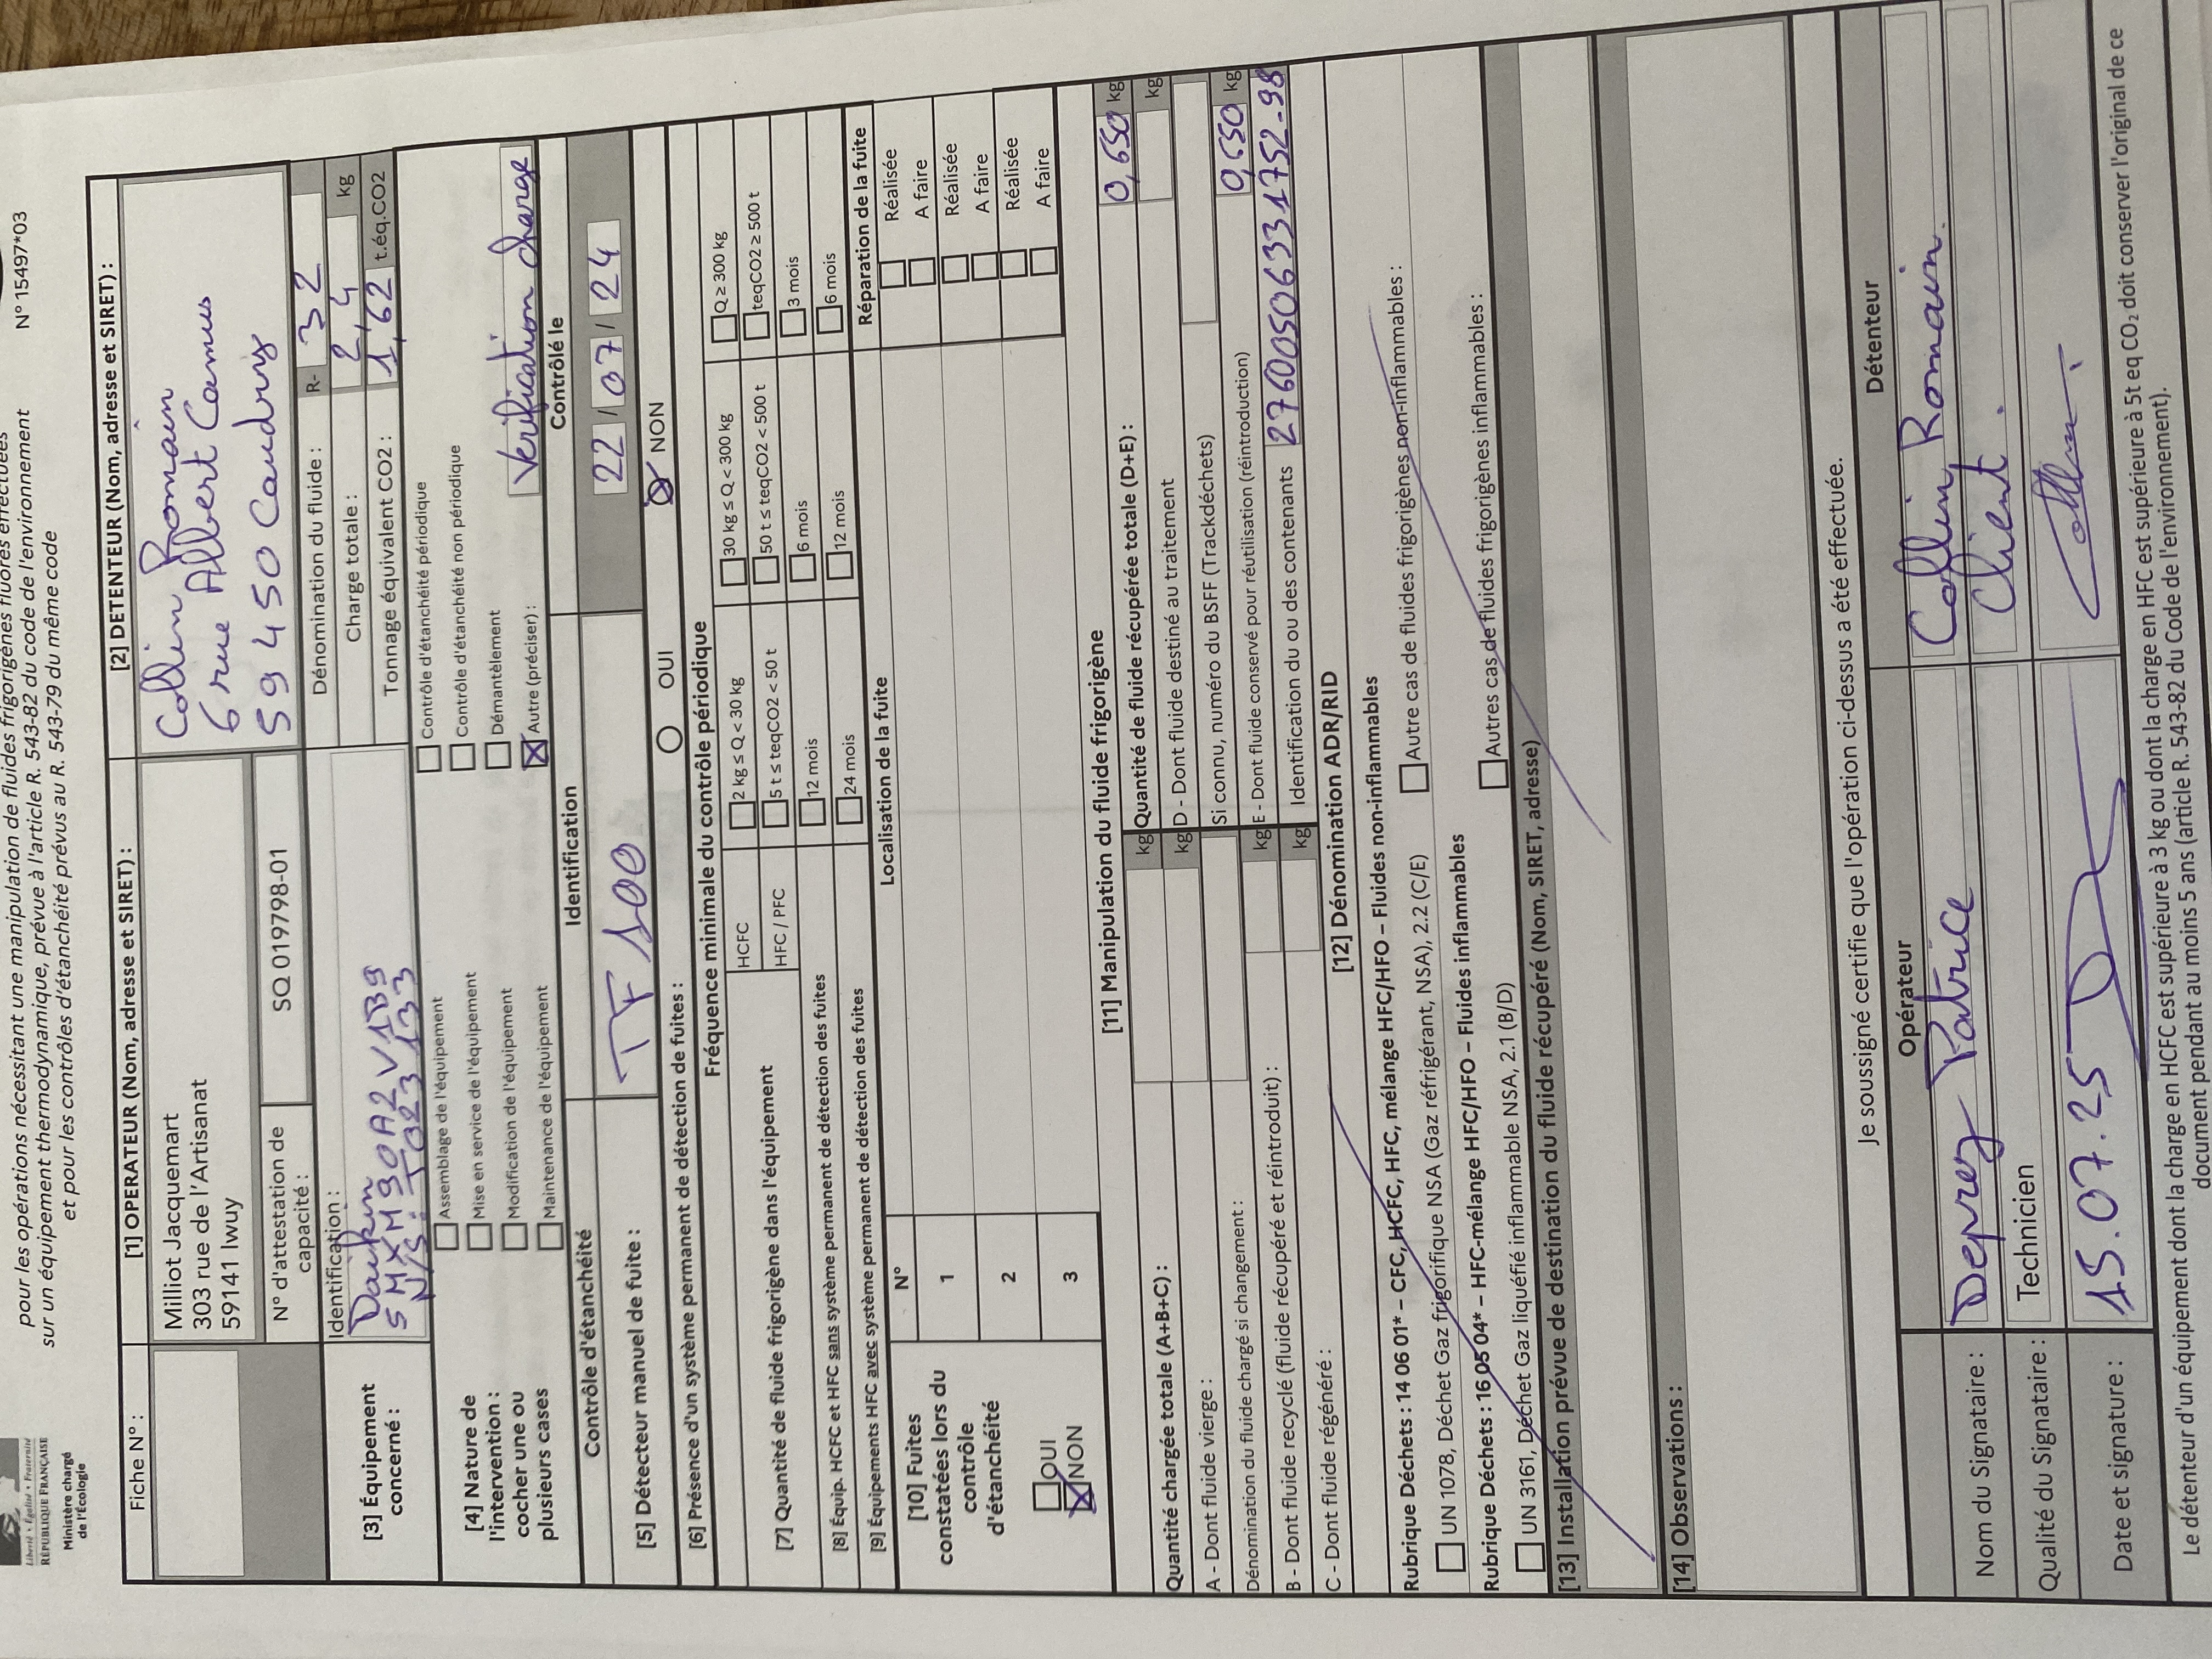 Liberté • Égalité • Fraternité
RÉPUBLIQUE FRANÇAISE
Ministère chargé
de l'Écologie
N° 15497*03
pour les opérations nécessitant une manipulation de fluides frigorigènes fluorés effectuées
sur un équipement thermodynamique, prévue à l'article R. 543-82 du code de l'environnement
et pour les contrôles d'étanchéité prévus au R. 543-79 du même code
Fiche N° :
[1] OPERATEUR (Nom, adresse et SIRET) :
Milliot Jacquemart
303 rue de l'Artisanat
59141 Iwuy
N° d'attestation de
capacité :
SQ 019798-01
[2] DETENTEUR (Nom, adresse et SIRET) :
Collin Romain
6 rue Albert Camus
59450 Caudry
[3] Équipement
concerné :
Identification :
Daikin
5MXM90A2V1B9
N/S: T023133
Dénomination du fluide : R- 32
Charge totale : 2,4 kg
Tonnage équivalent CO2 : 1,62 t.éq.CO2
[4] Nature de
l'intervention :
cocher une ou
plusieurs cases
Assemblage de l'équipement
Mise en service de l'équipement
Modification de l'équipement
Maintenance de l'équipement
Contrôle d'étanchéité périodique
Contrôle d'étanchéité non périodique
Démantèlement
Autre (préciser) : Vérification charge
Contrôle d'étanchéité
Identification
Contrôlé le
[5] Détecteur manuel de fuite :
TF 100
22 / 07 / 24
[6] Présence d'un système permanent de détection de fuites :
OUI
NON
Fréquence minimale du contrôle périodique
[7] Quantité de fluide frigorigène dans l'équipement
HCFC
2 kg ≤ Q < 30 kg
30 kg ≤ Q < 300 kg
Q ≥ 300 kg
HFC / PFC
5 t ≤ teqCO2 < 50 t
50 t ≤ teqCO2 < 500 t
teqCO2 ≥ 500 t
[8] Équip. HCFC et HFC sans système permanent de détection des fuites
12 mois
6 mois
3 mois
[9] Équipements HFC avec système permanent de détection des fuites
24 mois
12 mois
6 mois
[10] Fuites
constatées lors du
contrôle
d'étanchéité
OUI
NON
N°
Localisation de la fuite
Réparation de la fuite
1
Réalisée
A faire
2
Réalisée
A faire
3
Réalisée
A faire
[11] Manipulation du fluide frigorigène
Quantité chargée totale (A+B+C) : kg
A - Dont fluide vierge : kg
Dénomination du fluide chargé si changement :
B - Dont fluide recyclé (fluide récupéré et réintroduit) : kg
C - Dont fluide régénéré : kg
Quantité de fluide récupérée totale (D+E) : 0,650 kg
D - Dont fluide destiné au traitement kg
Si connu, numéro du BSFF (Trackdéchets)
E - Dont fluide conservé pour réutilisation (réintroduction) 0,650 kg
Identification du ou des contenants 2760050633 1752-98
[12] Dénomination ADR/RID
Rubrique Déchets : 14 06 01* – CFC, HCFC, HFC, mélange HFC/HFO – Fluides non-inflammables
UN 1078, Déchet Gaz frigorifique NSA (Gaz réfrigérant, NSA), 2.2 (C/E)
Autre cas de fluides frigorigènes non-inflammables :
Rubrique Déchets : 16 05 04* – HFC-mélange HFC/HFO – Fluides inflammables
UN 3161, Déchet Gaz liquéfié inflammable NSA, 2.1 (B/D)
Autres cas de fluides frigorigènes inflammables :
[13] Installation prévue de destination du fluide récupéré (Nom, SIRET, adresse)
[14] Observations :
Je soussigné certifie que l'opération ci-dessus a été effectuée.
Opérateur
Détenteur
Nom du Signataire :
Deprez Patrice
Collin Romain.
Qualité du Signataire :
Technicien
Client.
Date et signature :
15.07.25
Le détenteur d'un équipement dont la charge en HCFC est supérieure à 3 kg ou dont la charge en HFC est supérieure à 5t eq CO₂ doit conserver l'original de ce
document pendant au moins 5 ans (article R. 543-82 du Code de l'environnement).